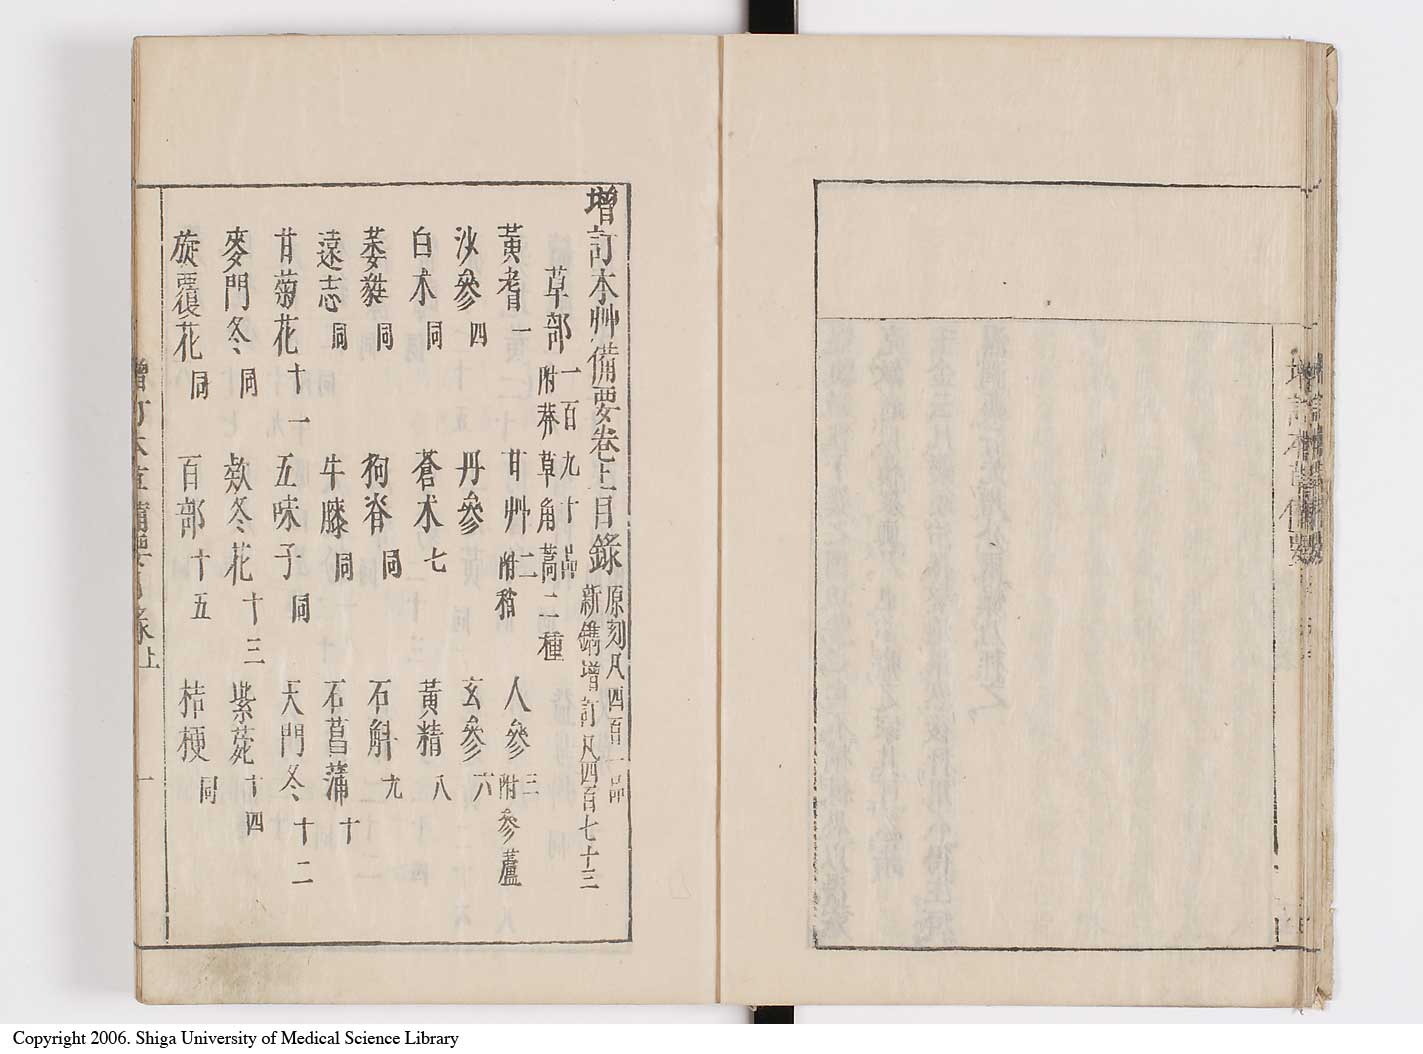 增訂本艸備要卷上目錄 原刻凡四百一品 新鐫增訂凡四百七十三
草部 一百九十品 附莽草角蒿二種
黃耆一 甘艸二附稍 人參三附參蘆
沙參四 丹參 玄參六
白朮同 蒼朮七 黃精八
萎蕤同 狗脊同 石斛九
遠志同 牛膝同 石菖蒲十
甘菊花十一 五味子同 天門冬十二
麥門冬同 欵冬花十三 紫菀十四
旋覆花同 百部十五 桔梗同
增訂本草備要目錄上 一
增訂本草備要
Copyright 2006. Shiga University of Medical Science Library